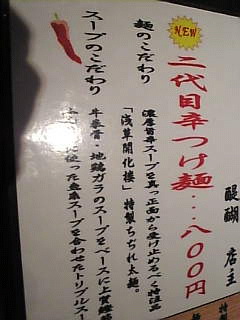 NEW
二代目辛つけ麺…八〇〇円
醍醐 店主
麺のこだわり
濃厚旨辛スープを真っ正面から受け止めるべく特注品
「浅草開化楼」特製ちぢれ太麺。
スープのこだわり
牛豚骨・地鶏ガラのスープをベースに上質鰹節
使った魚系スープを合わせたトリプルスー